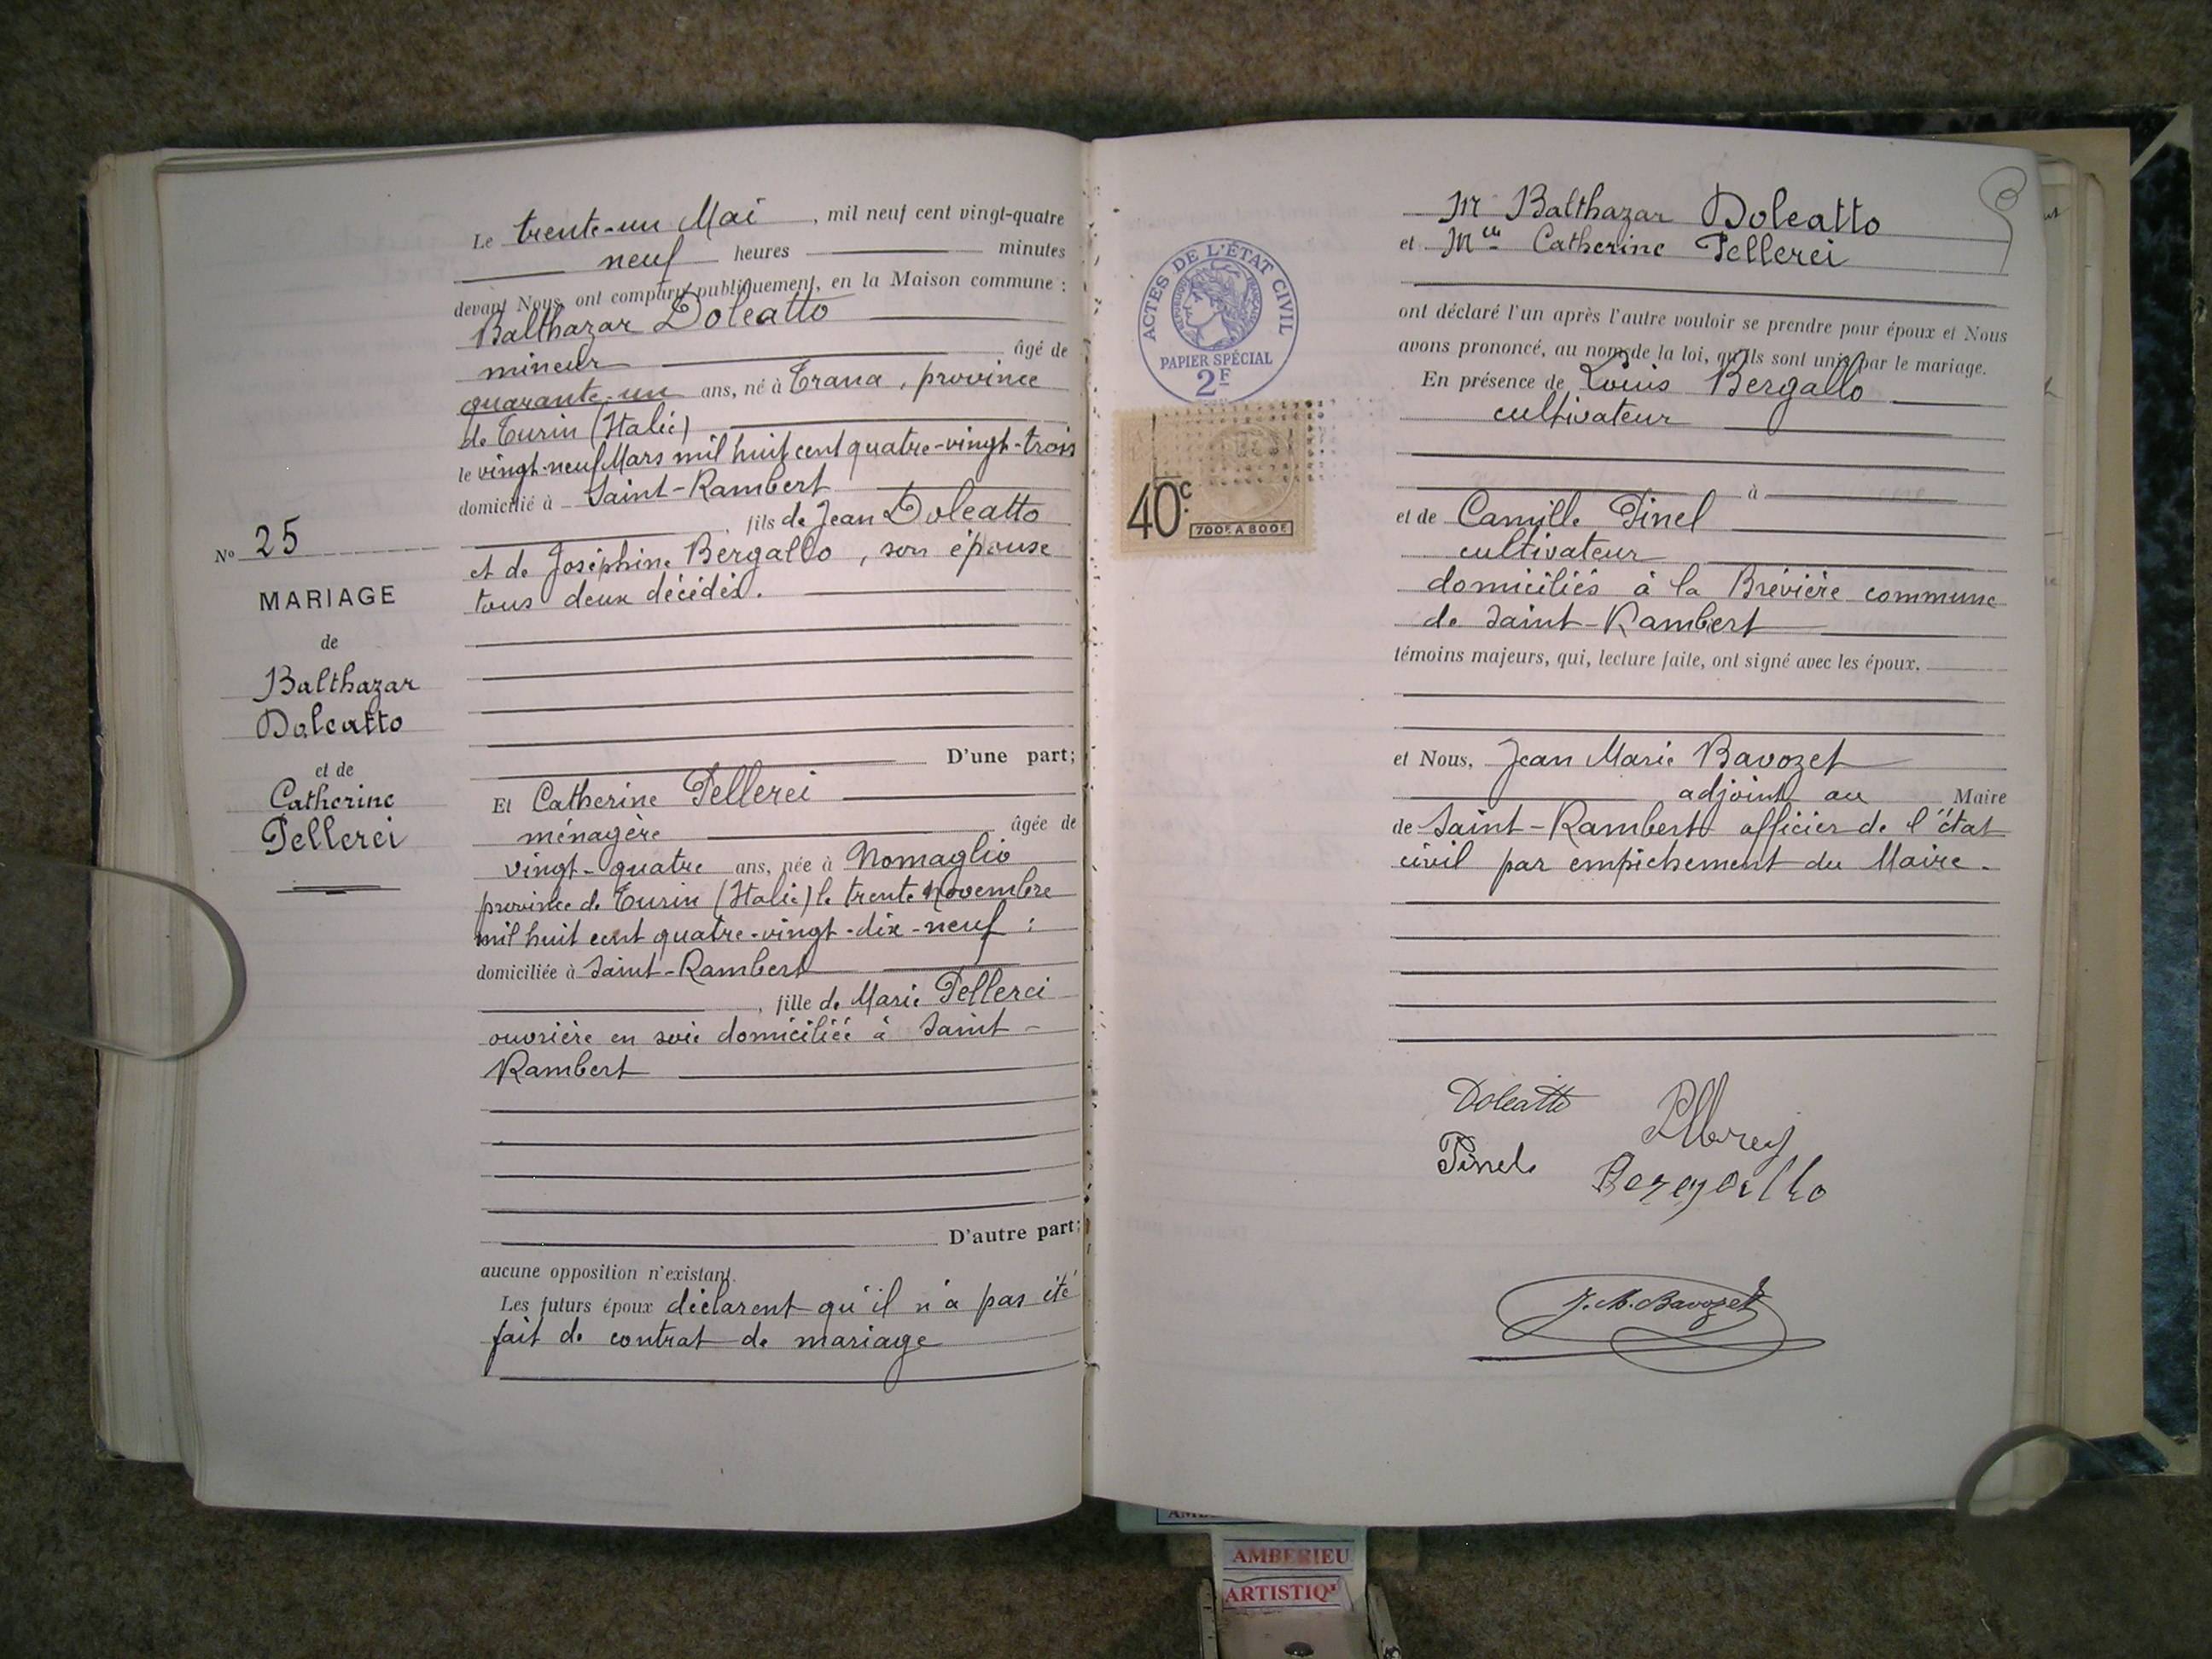 Le trente-un Mai, mil neuf cent vingt-quatre
neuf heures minutes
devant Nous, ont comparu publiquement, en la Maison commune :
Balthazar Doleatto
mineur âgé de
quarante-un ans, né à Trana, province
de Turin (Italie)
le vingt-neuf Mars mil huit cent quatre-vingt-trois
domicilié à Saint-Rambert
, fils de Jean Doleatto
et de Joséphine Bergallo, son épouse
tous deux décédés.
D'une part;
Nº 25
MARIAGE
de
Balthazar
Doleatto
et de
Catherine
Pellerei
Et Catherine Pellerei
ménagère âgée de
vingt-quatre ans, née à Nomaglio
province de Turin (Italie) le trente Novembre
mil huit cent quatre-vingt-dix-neuf :
domiciliée à Saint-Rambert
, fille de Marie Pellerei
ouvrière en soie domiciliée à Saint-
Rambert
D'autre part;
aucune opposition n'existant.
Les futurs époux déclarent qu'il n'a pas été
fait de contrat de mariage
ACTES DE L'ÉTAT CIVIL
RÉPUBLIQUE FRANÇAISE
PAPIER SPÉCIAL
2F
40c.
700F A 800F
Mr Balthazar Doleatto
et Melle Catherine Pellerei
ont déclaré l'un après l'autre vouloir se prendre pour époux et Nous
avons prononcé, au nom de la loi, qu'ils sont unis par le mariage.
En présence de Louis Bergallo
cultivateur
à
et de Camille Pinel
cultivateur
domiciliés à la Brévière commune
de Saint-Rambert
témoins majeurs, qui, lecture faite, ont signé avec les époux.
et Nous, Jean Marie Bavozet
adjoint au Maire
de Saint-Rambert officier de l'état
civil par empêchement du Maire.
Doleatto
Pinel
Bergallo
J. M. Bavozet
AMBERIEU
ARTISTIQ